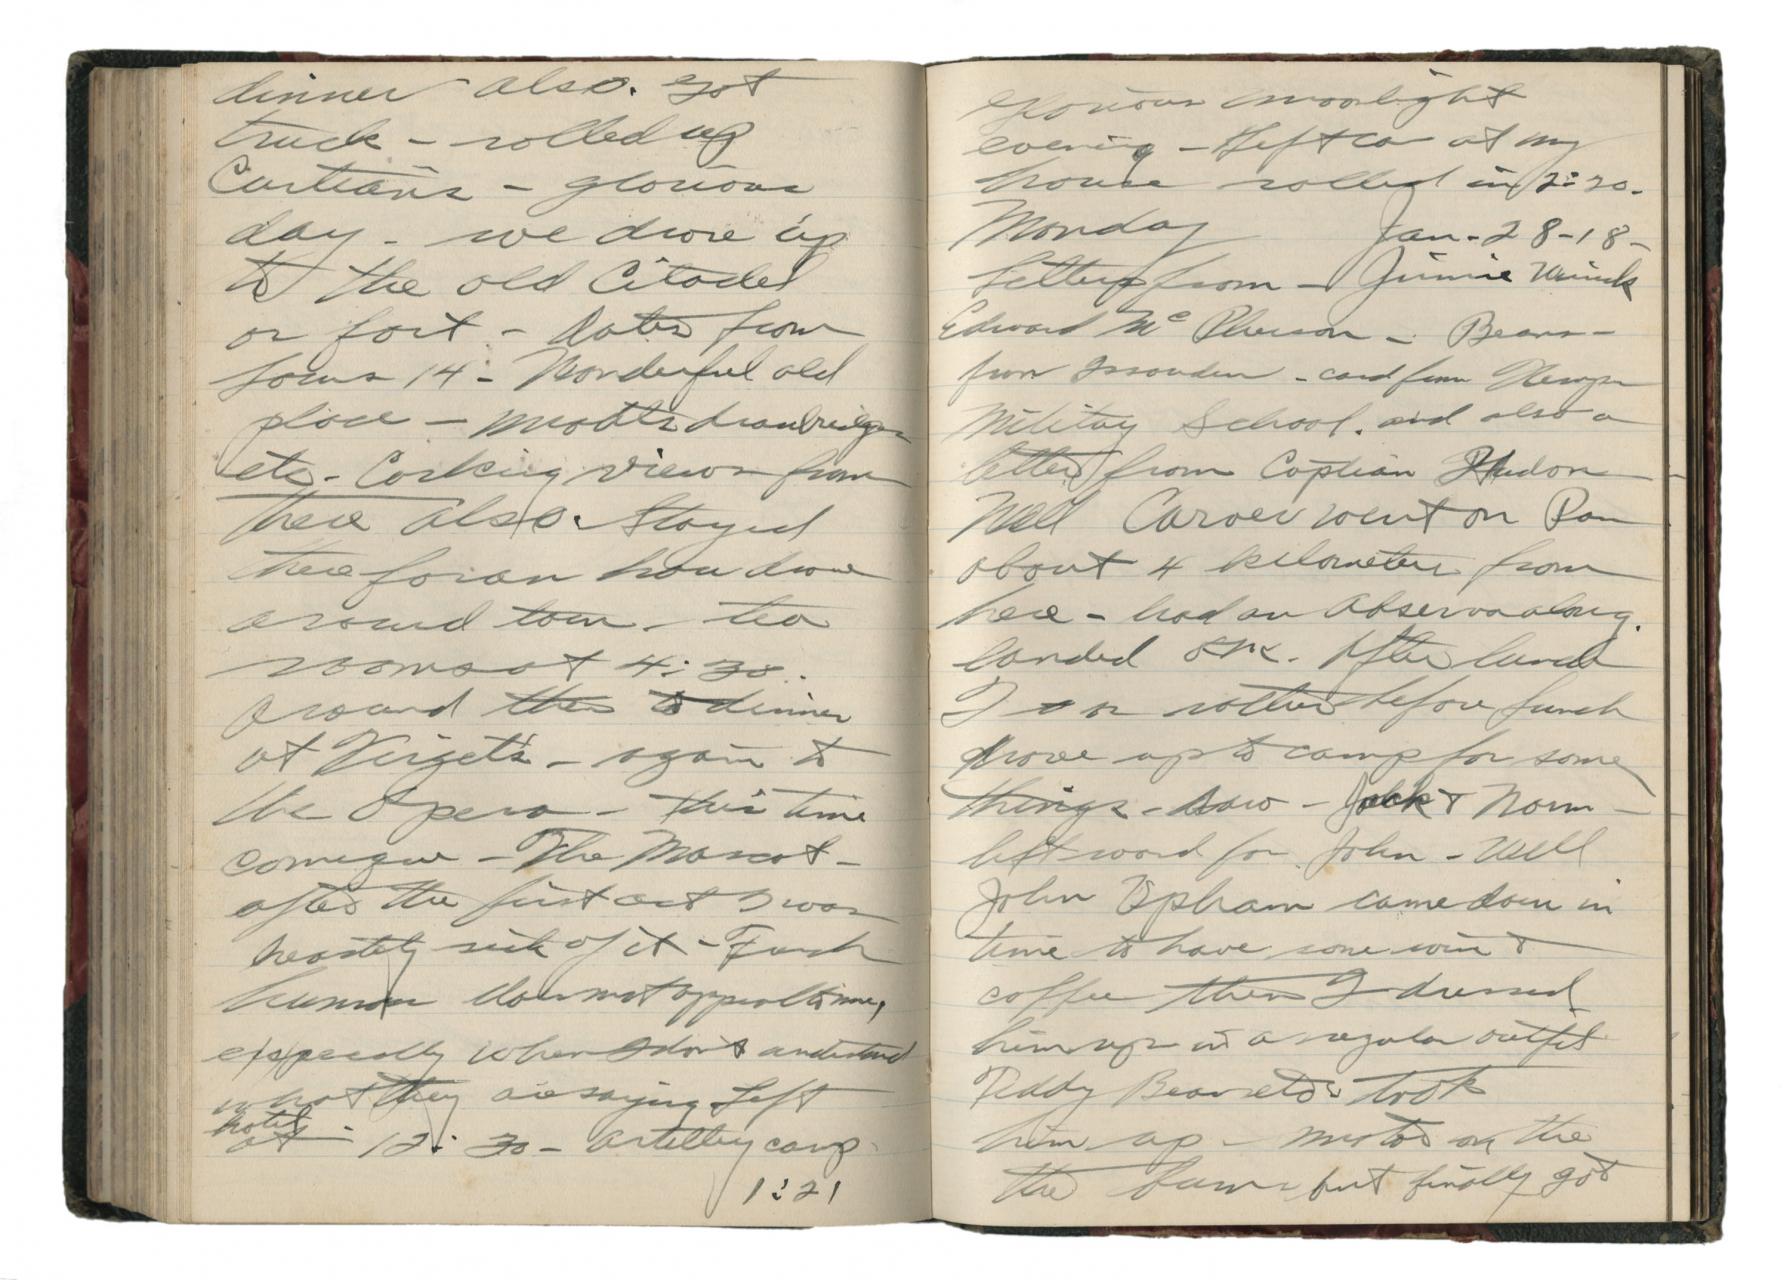 dinner also. Got
truck - rolled up
Curtains - glorious
day - we drove up
to the old Citadel
or fort - dates from
14 - Wonderful old
place - moats drawbridges
etc - Corking views from
there also. Stayed
there for an hour drove
around town - tea
rooms at 4:30.
Around then to dinner
at - again to
the Opera - this time
comique - The Mascot -
after the first act I was
heartily sick of it - French
humor does not appeal to me,
especially when I don't understand
what they are saying. Left
hotel
at 12:30 - artillery camp
1:21
glorious moonlight
evening - Left car at my
house rolled in 2:20.
Monday Jan-28-18-
Letters from - Jimmie
Edward McPherson - Beans -
from Issoudun - card from
Military School. and also a
letter from Captian
Well Carver went on Pan
about 4 kilometers from
here - had an Observer along.
landed O.K. After lunch
I or rather before lunch
drove up to camp for some
things - saw - Jack & Norm -
left word for John - Well
John Upham came down in
time to have some wine &
coffee then I dressed
him up in a regular outfit
Teddy Bears etc. Took
him up - motor on the
the bum but finally got